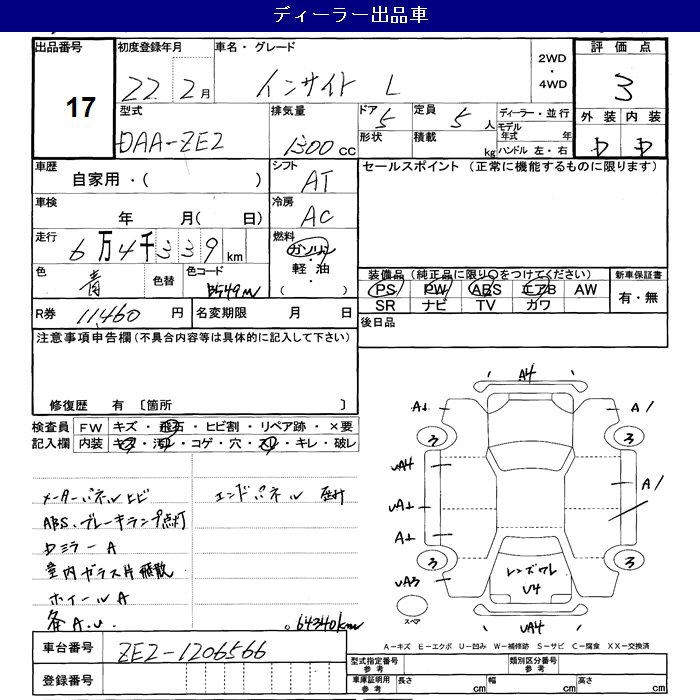 ディーラー出品車
出品番号 17
初度登録年月 22 2月
車名・グレード インサイト L
2WD・4WD
評価点 3
型式 DAA-ZE2
排気量 1300cc
ドア 5
形状
定員 5人
積載 kg
ディーラー・並行
モデル年式 年
ハンドル 左・右
外装 内装
車歴 自家用・( )
シフト AT
セールスポイント(正常に機能するものに限ります)
車検 年 月( 日)
冷房 AC
走行 6万4千339km
燃料 ガソリン・軽油・( )
色 青 色替 色コード B549M
装備品(純正品に限り○をつけてください)
新車保証書 有・無
PS PW ABS エアB AW
SR ナビ TV カワ
R券 11,460円
名変期限 月 日
後日品
注意事項申告欄(不具合内容等は具体的に記入して下さい)
修復歴 有 〔箇所 〕
検査員記入欄
FW キズ・飛石・ヒビ割・リペア跡・×要
内装 キズ・汚れ・コゲ・穴・スレ・キレ・破レ
メーターパネルヒビ
エンドパネル
ABS、ブレーキランプ点灯
ロミラーA
室内ガラス片飛散
ホイールA
条A.U.
64340km
A4
A1 A1
3 3
UA4
A1
UA1
A1
3 3
UA3
レンズワレ
U4
スペア
UA4
A-キズ E-エクボ U-凹み W-補修跡 S-サビ C-腐食 XX-交換済
車台番号 ZE2-1206566
登録番号
型式指定番号 参考
類別区分番号 参考
車庫証明用 参考
長さ cm 幅 cm 高さ cm